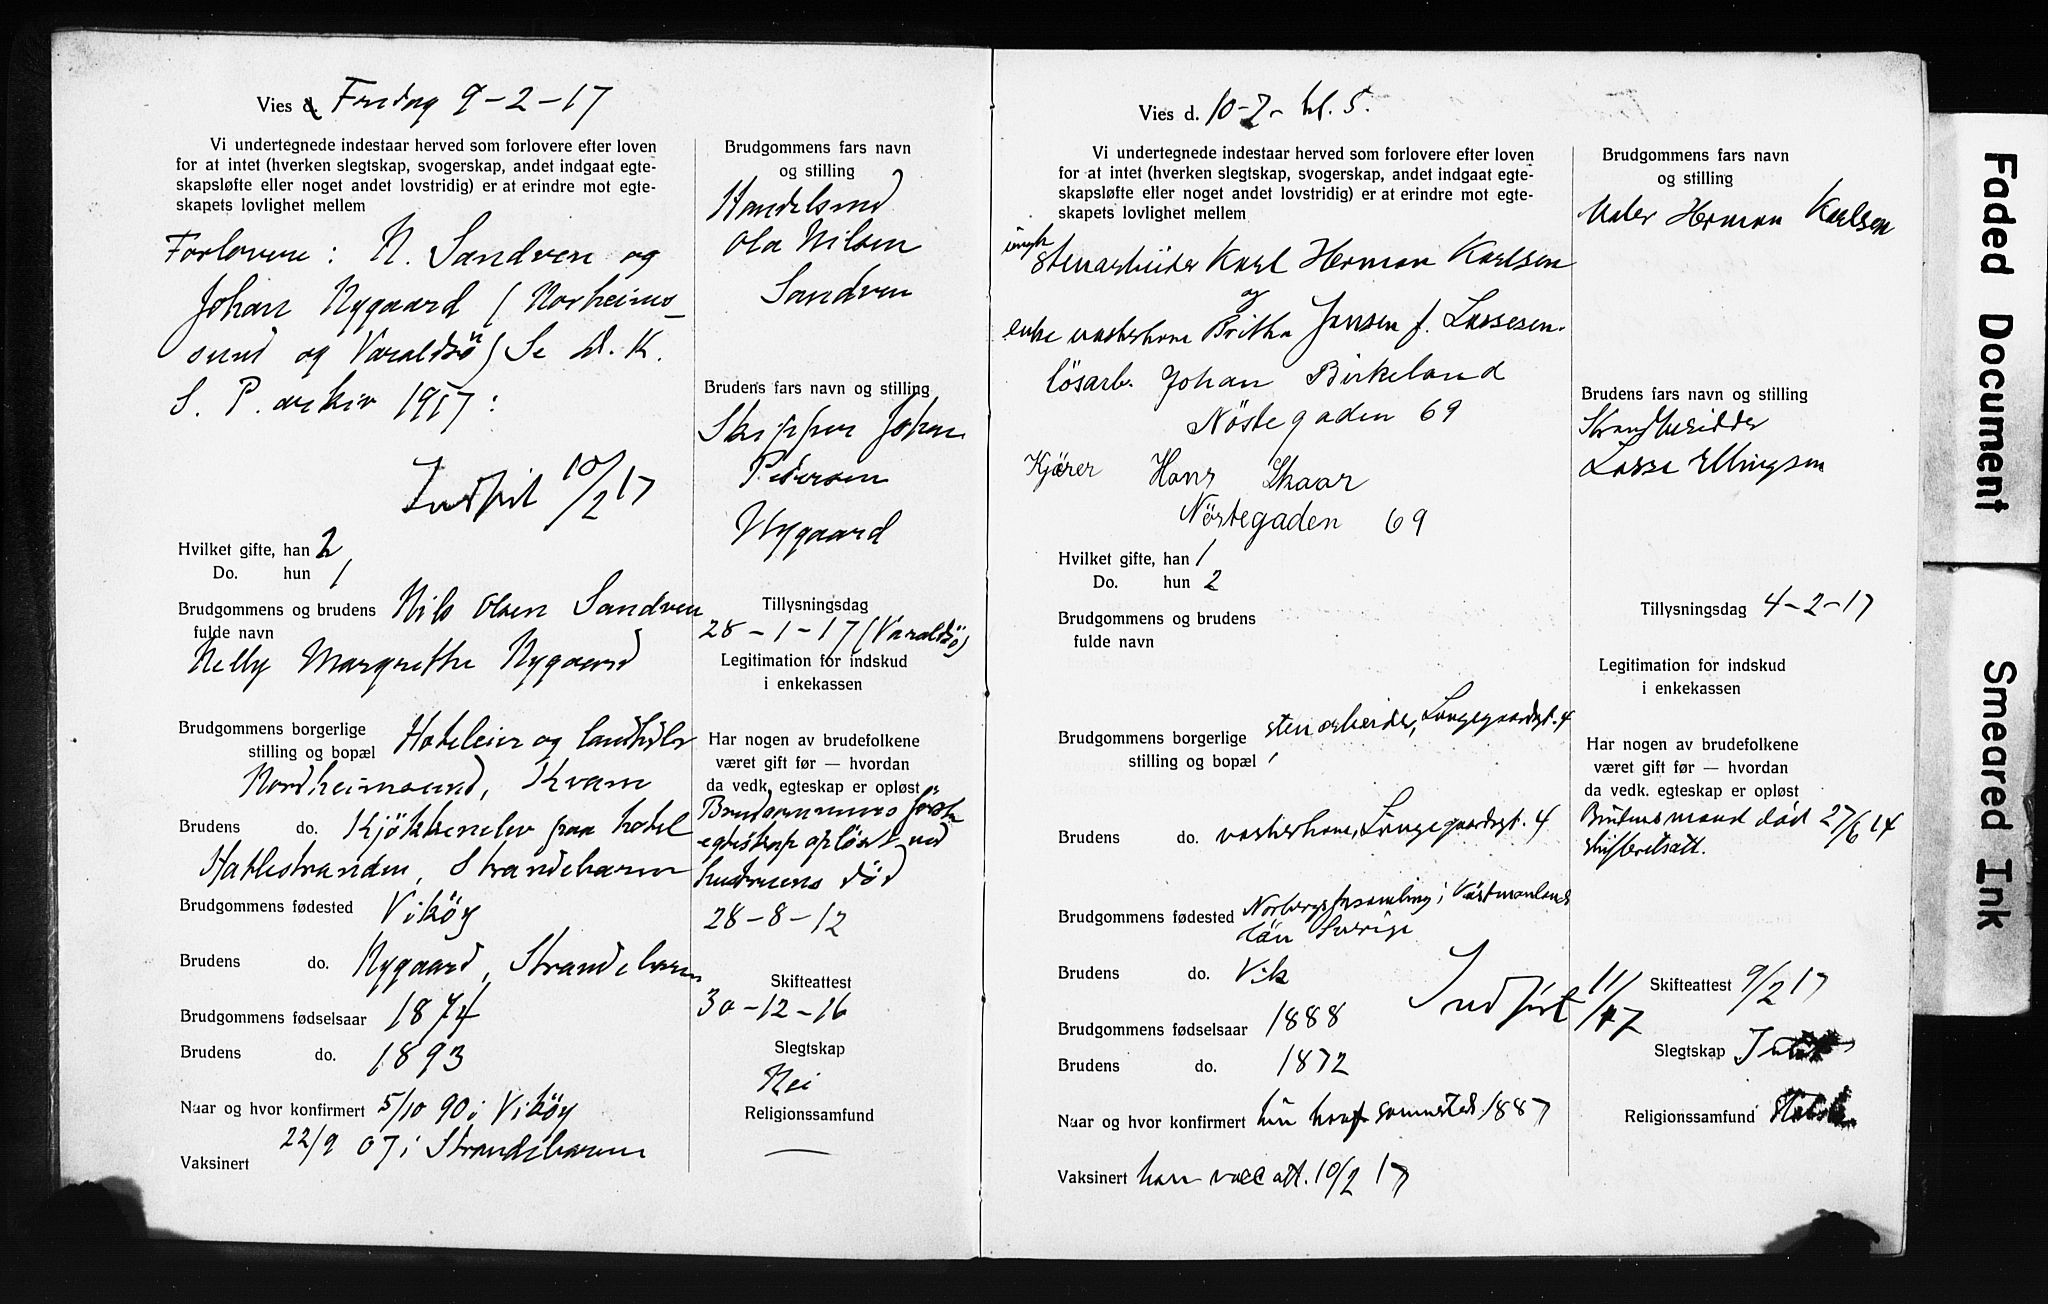 Vies d. Fredag 9-2-17
Vi undertegnede indestaar herved som forlovere efter loven
for at intet (hverken slegtskap, svogerskap, andet indgaat egte-
skapsløfte eller noget andet lovstridig) er at erindre mot egte-
skapets lovlighet mellem
Forlovere: N. Sandven og
Johan Nygaard (Norheims-
sund og Varaldsö) Se D. K.
S. P. arkiv 1917:
Indført 10/2 17
Hvilket gifte, han 2
Do. hun 1
Brudgommens og brudens Nils Olsen Sandven
fulde navn
Nelly Margrethe Nygaard
Brudgommens borgerlige
stilling og bopæl Hoteleier og landhdlr
Nordheimsund, Kvam
Brudens do. Kjökkenelev paa hotel
Hatlestranden, Strandebarm
Brudgommens fødested Viköy
Brudens do. Nygaard, Strandebarm
Brudgommens fødselsaar 1874
Brudens do. 1893
Naar og hvor konfirmert 5/10 90 i Viköy
22/9 07 i Strandebarm
Vaksinert
Brudgommens fars navn
og stilling
Handelsmd
Ola Nilsen
Sandven
Brudens fars navn og stilling
Skipper Johan
Pedersen
Nygaard
Tillysningsdag
28-1-17 (Varaldsö)
Legitimation for indskud
i enkekassen
Har nogen av brudefolkene
været gift før — hvordan
da vedk. egteskap er opløst
Brudgommens första
egteskap oplöst ved
hustruens död
28-8-12
Skifteattest
30-12-16
Slegtskap
Nei
Religionssamfund
—
Vies d. 10-2- kl. 5.
Vi undertegnede indestaar herved som forlovere efter loven
for at intet (hverken slegtskap, svogerskap, andet indgaat egte-
skapsløfte eller noget andet lovstridig) er at erindre mot egte-
skapets lovlighet mellem
ungk
stenarbeider Karl Herman Karlsen
og
enke vaskerkone Britha Jansen f. Lassesen.
løsarb. Johan Birkeland
Nöstegaden 69
Kjører Hans Skaar
Nöstegaden 69
Hvilket gifte, han 1
Do. hun 2
Brudgommens og brudens
fulde navn
Brudgommens borgerlige
stilling og bopæl stenarbeider, Lungegaardsgt. 4
Brudens do. vaskerkone, Lungegaardsgt. 4
Brudgommens fødested Norbergs församling i Västmanlands
län Sverige
Brudens do. Vik
Brudgommens fødselsaar 1888
Indført 11/4 17
Brudens do. 1872
Naar og hvor konfirmert hun sammesteds 1887
Vaksinert han vacc att. 10/2 17
Brudgommens fars navn
og stilling
Maler Herman Karlsen
Brudens fars navn og stilling
Strandsidder
Lasse Ellingsen
Tillysningsdag 4-2-17
Legitimation for indskud
i enkekassen
Har nogen av brudefolkene
været gift før — hvordan
da vedk. egteskap er opløst
Brudens mand död 27/6 14
skifteretsatt.
Skifteattest 9/2 17
Slegtskap
Religionssamfund
Faded Document
Smeared Ink